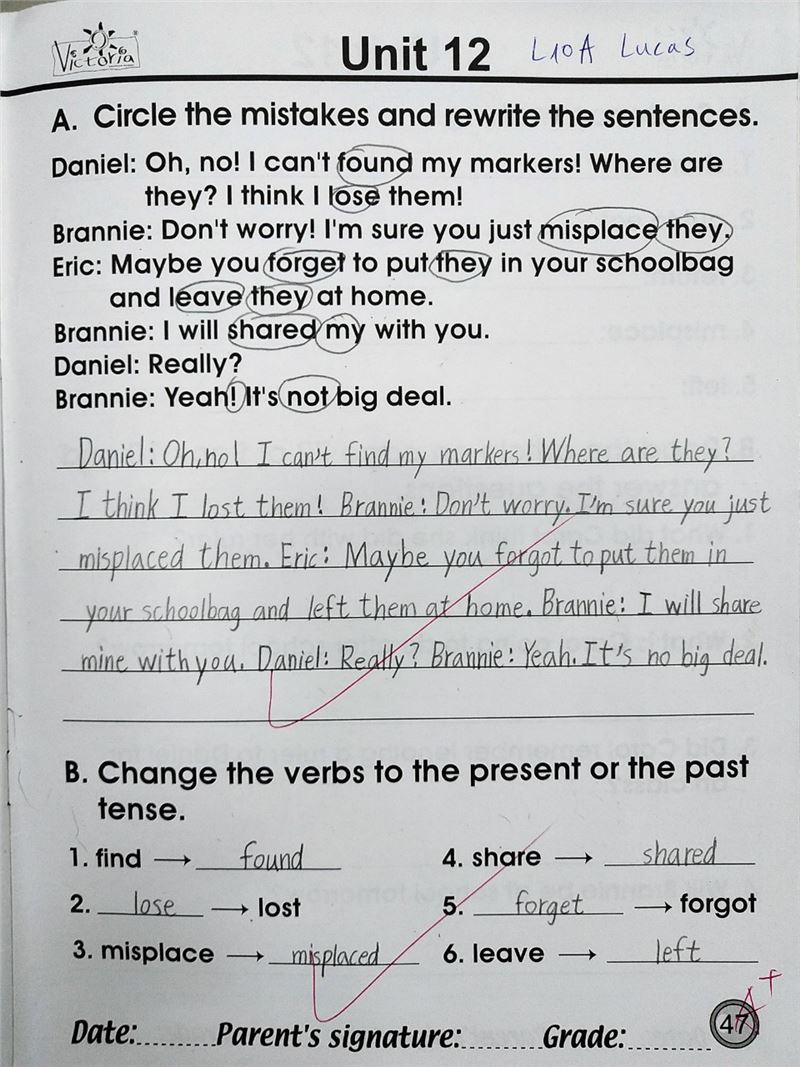 Victoria
Unit 12
L10A Lucas
A. Circle the mistakes and rewrite the sentences.
Daniel: Oh, no! I can't found my markers! Where are
they? I think I lose them!
Brannie: Don't worry! I'm sure you just misplace they.
Eric: Maybe you forget to put they in your schoolbag
and leave they at home.
Brannie: I will shared my with you.
Daniel: Really?
Brannie: Yeah! It's not big deal.
Daniel: Oh, no! I can't find my markers! Where are they?
I think I lost them! Brannie: Don't worry. I'm sure you just
misplaced them. Eric: Maybe you forgot to put them in
your schoolbag and left them at home. Brannie: I will share
mine with you. Daniel: Really? Brannie: Yeah. It's no big deal.
B. Change the verbs to the present or the past
tense.
1. find → found
4. share → shared
2. lose → lost
5. forget → forgot
3. misplace → misplaced
6. leave → left
A+
47
Date:......... Parent's signature:......... Grade:.........